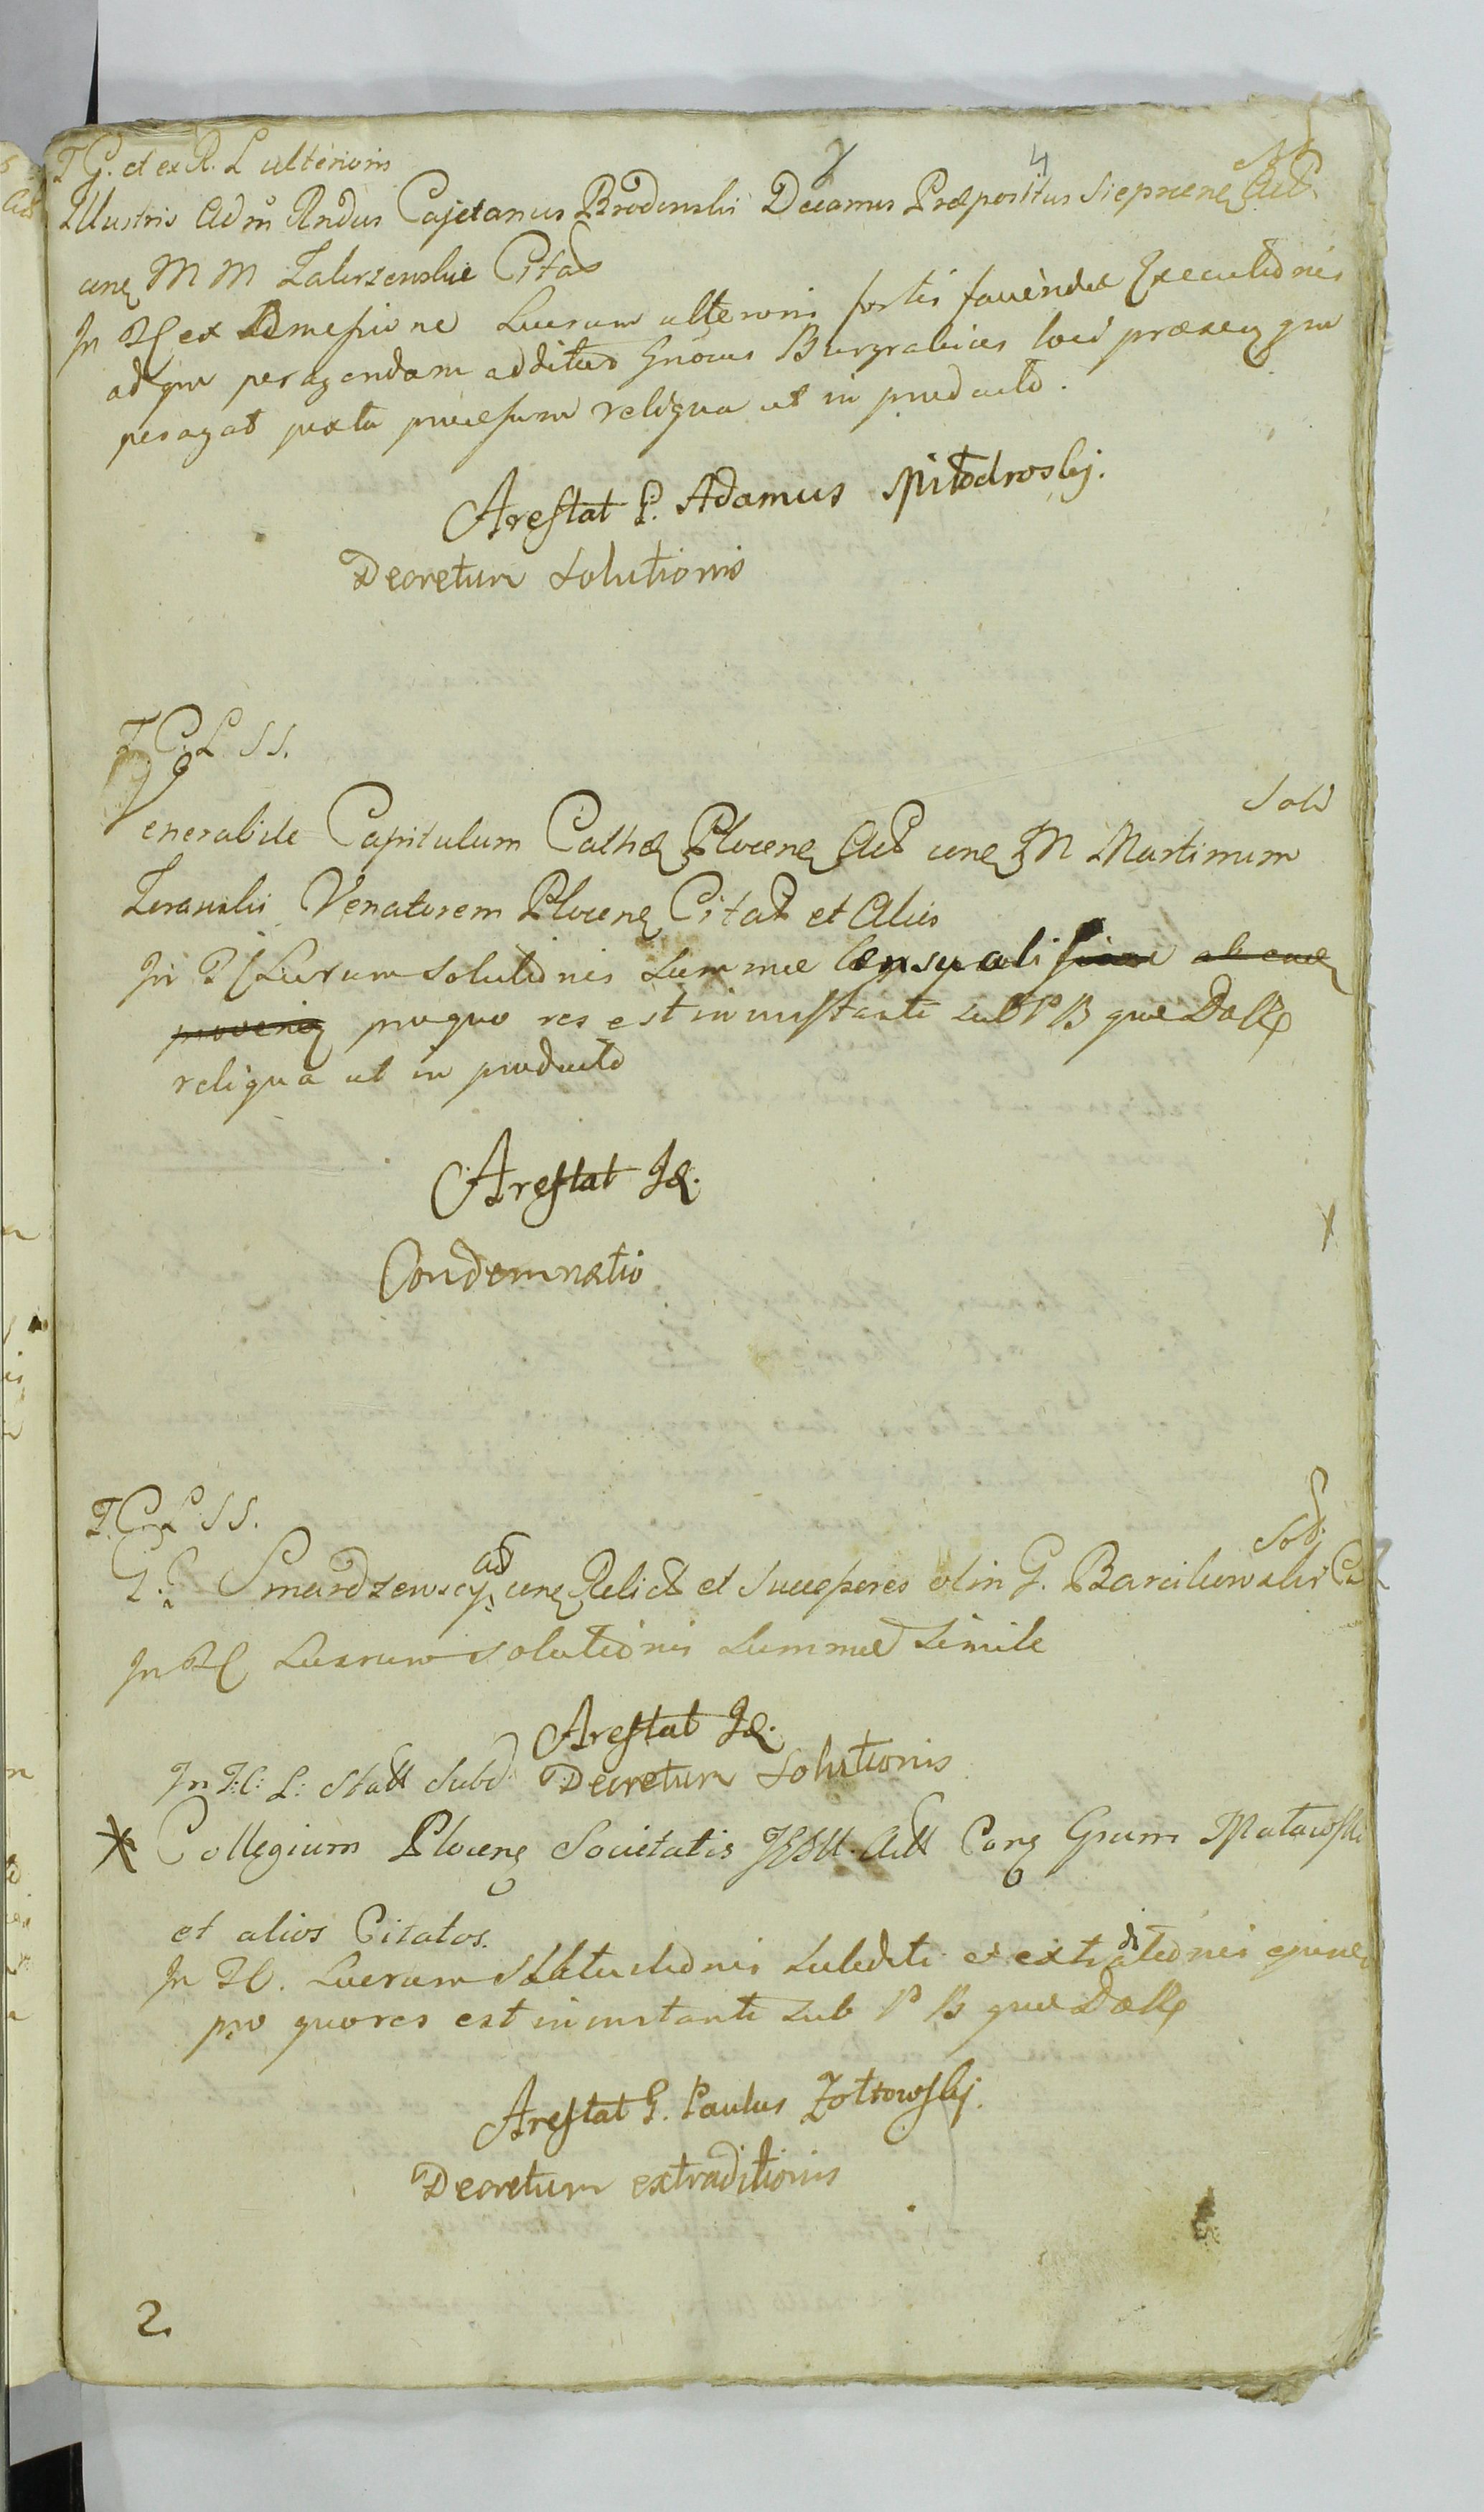 4
T G. et ex R. L ulterioris
Illustris Adm Rndus Cajetanus Brodowski Decanus Præpositus Siepruenę Act
conę M M Zakrzewskie Citat
In Tl ex admissione Lucrum ulterioris fortis favendæ Executionis
ad qm peragendam additus Gnosus Burgrabius loci præseq qm
peragat juxta processum reliqua ut in producto.
Arestat P. Adamus
Decretum Solutionis
T C. L SS.
Solis
Venerabile Capitulum Cathæ Plocenę Act conę M Martinum
Venatorem Plocenę Citat et Alios
In Tl Lucrum Solutionis Summæ Censuali
pro quo res est in instanti sub P B quæ Dalle
reliqua ut in producto
Arestat Id.
Condemnatio
T. C. L. SS.
Sod:
G. G. Smardzewscy act conę Relict et Successores olim G. Barcikowski
In Tl Lucrum Solutionis Summæ Simile
Arestat Id.
In T: C: L: Statt Subd. Decretum Solutionis
Collegium Plocenę Societatis JESU Act Conę Gsum
et alios Citatos.
In Tl. Lucrum Statuitionis Subditi et extraditionis
pro quo res est in instanti sub P B quæ Dalle
Arestat G. Paulus Zołtowskj.
Decretum extraditionis
2.